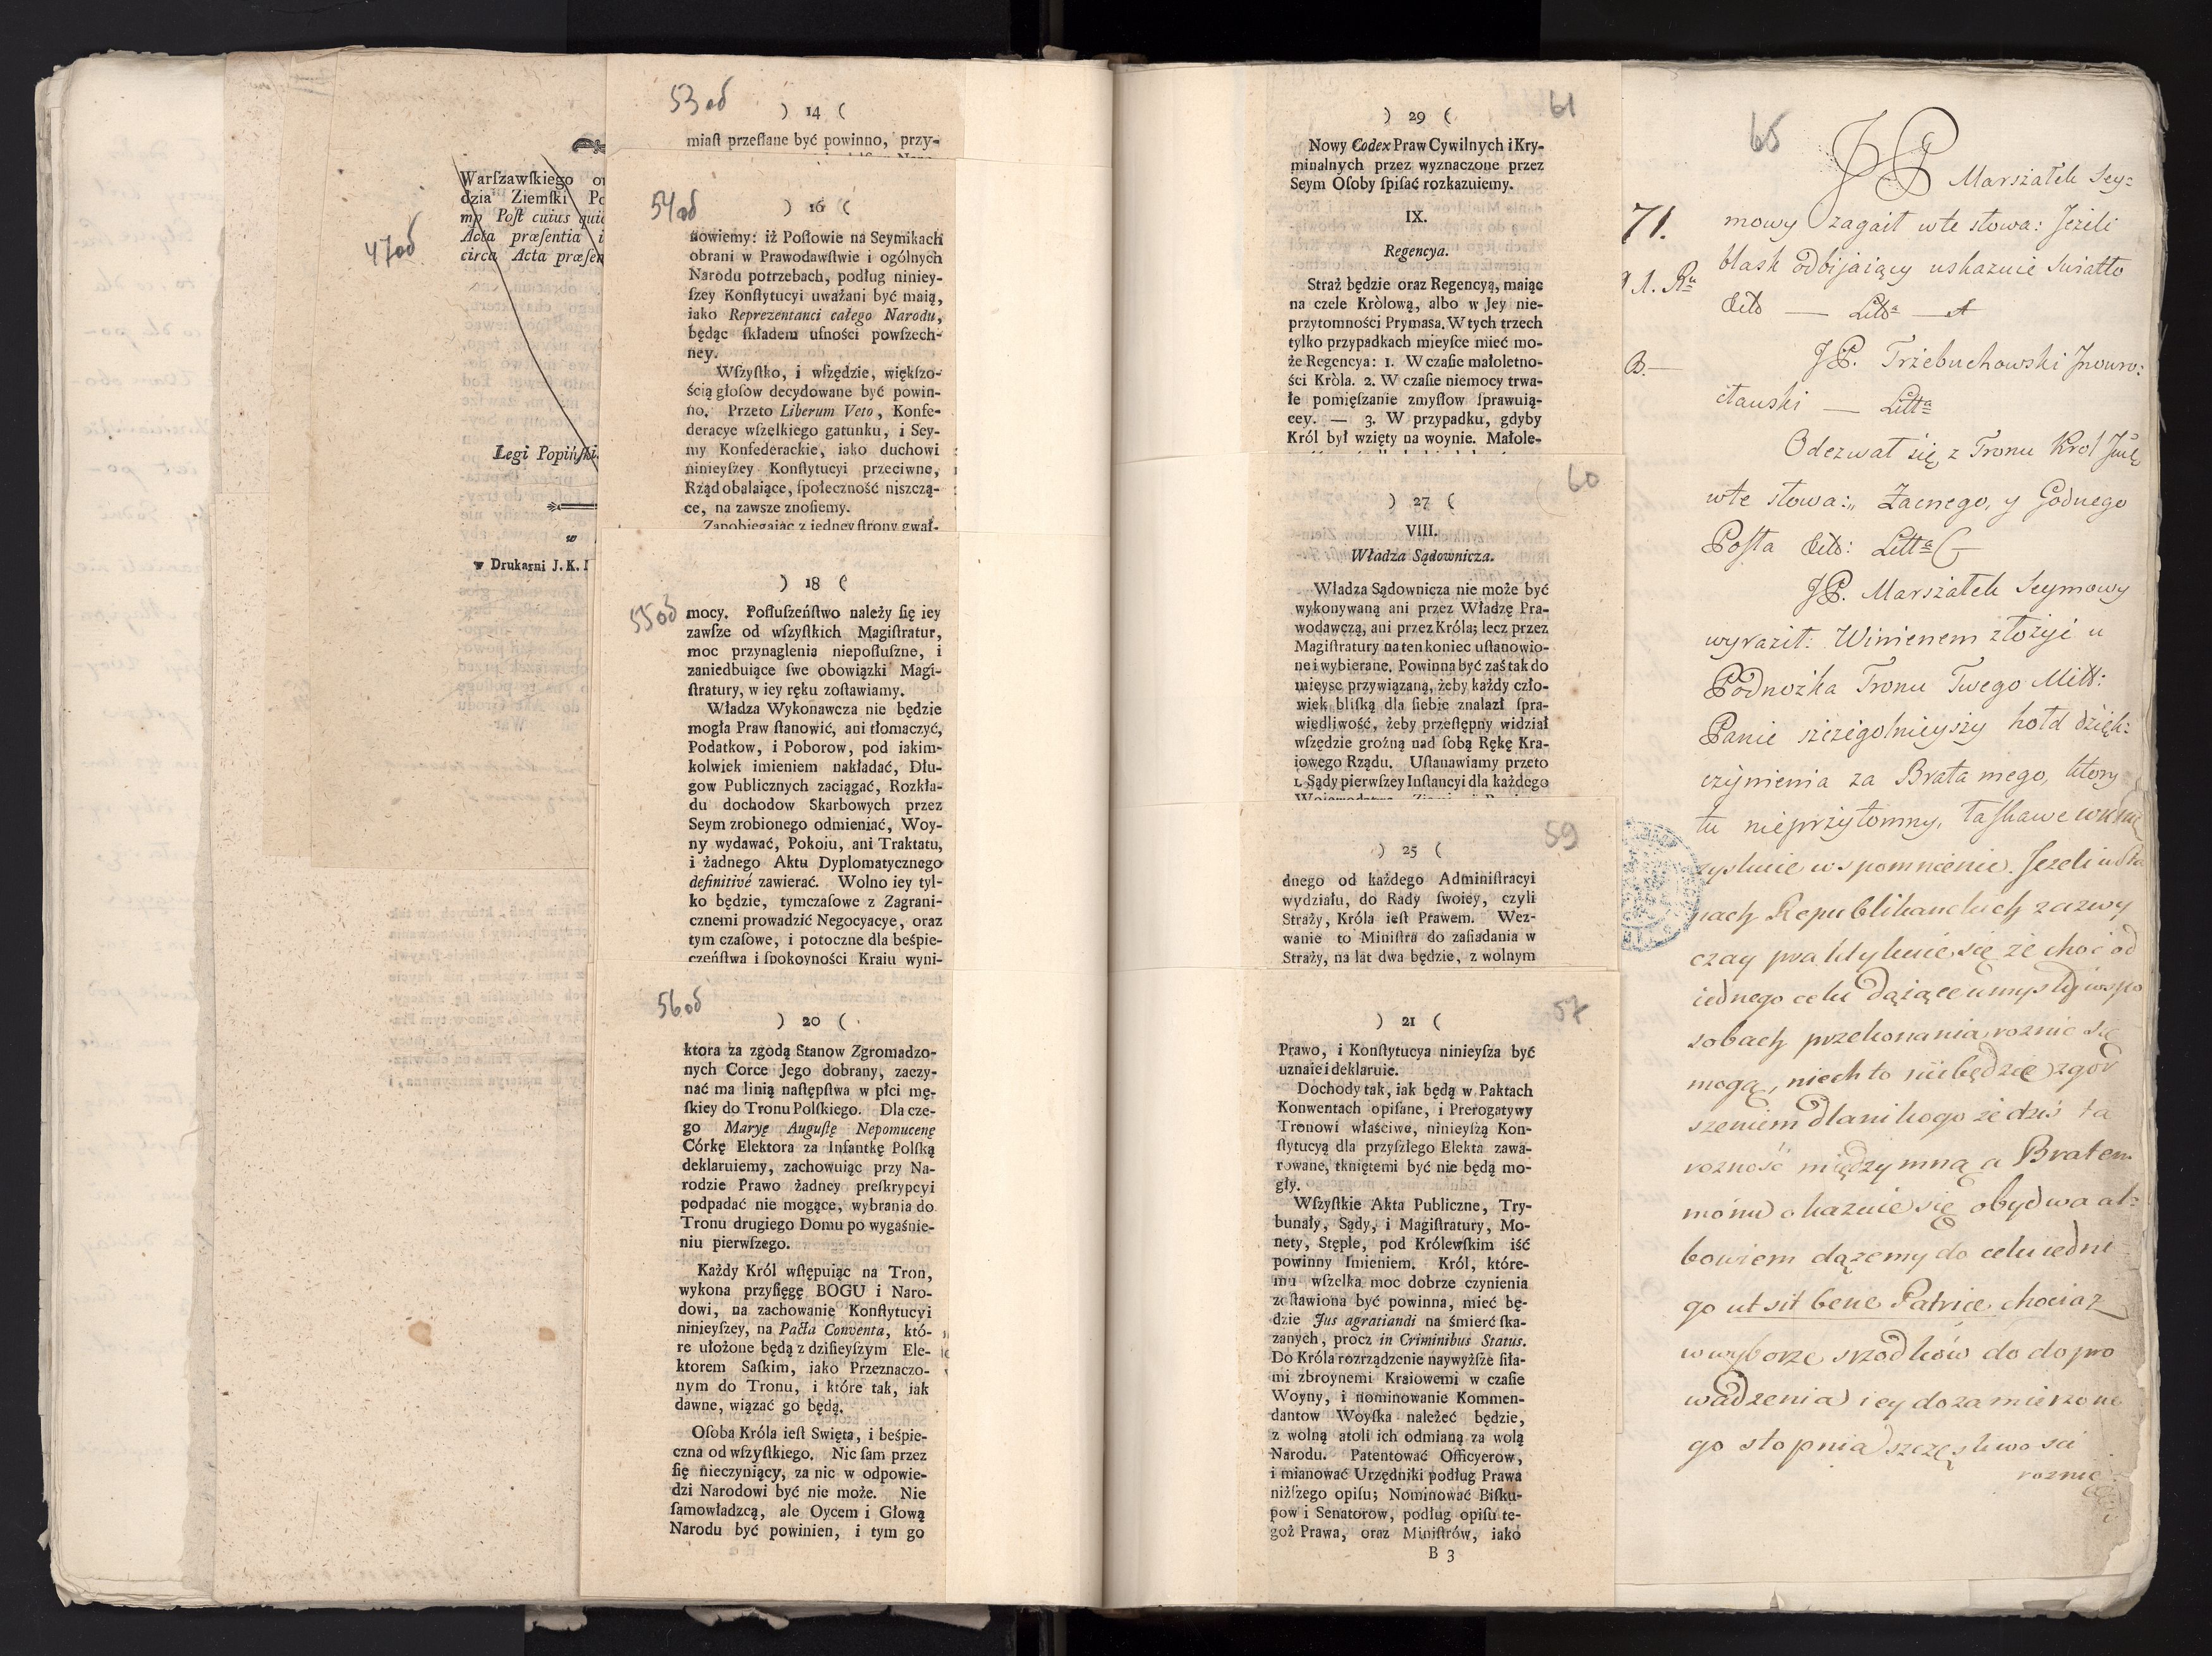 47об
Warſzawſkiego
dzia Ziemſki
mp Poſt cuius
Acta præſentia
circa Acta
Legi Popińſki
w
w Drukarni J. K.
53об
) 14 (
miaſt przeſłane być powinno, przy-
54об
) 16 (
nowiemy: iż Poſłowie na Seymikach
obrani w Prawodawſtwie i ogólnych
Narodu potrzebach, podług niniey-
ſzey Konſtytucyi uważani być maią,
iako Reprezentanci całego Narodu,
będąc ſkładem uſności powſzech-
ney.
Wſzyſtko, i wſzędzie, większo-
ścią głoſow decydowane być powin-
no. Przeto Liberum Veto, Konfe-
deracye wſzelkiego gatunku, i Sey-
my Konfederackie, iako duchowi
ninieyſzey Konſtytucyi przeciwne,
Rząd obalaiące, ſpołeczność niszczą-
ce, na zawsze znoſiemy.
Zapobiegaiąc z iedney ſtrony gwał-
55об
) 18 (
mocy. Poſłuſzeńſtwo należy ſię iey
zawſze od wſzyſtkich Magiſtratur,
moc przynaglenia niepoſłuſzne, i
zaniedbuiące ſwe obowiązki Magi-
ſtratury, w iey ręku zoſtawiamy.
Władza Wykonawcza nie będzie
mogła Praw ſtanowić, ani tłomaczyć,
Podatkow, i Poborow, pod iakim-
kolwiek imieniem nakładać, Dłu-
gow Publicznych zaciągać, Rozkła-
du dochodow Skarbowych przez
Seym zrobionego odmieniać, Woy-
ny wydawać, Pokoiu, ani Traktatu,
i żadnego Aktu Dyplomatycznego
definitivé zawierać. Wolno iey tyl-
ko będzie, tymczaſowe z Zagrani-
cznemi prowadzić Negocyacye, oraz
tym czaſowe, i potoczne dla beśpie-
czeńſtwa i ſpokoyności Kraiu wyni-
56об
) 20 (
ktora za zgodą Stanow Zgromadzo-
nych Corce Jego dobrany, zaczy-
nać ma linią naſtępſtwa w płci mę-
ſkiey do Tronu Polſkiego. Dla cze-
go Maryę Auguſtę Nepomucenę
Córkę Elektora za Infantkę Polſką
deklaruiemy, zachowuiąc przy Na-
rodzie Prawo żadney preſkrypcyi
podpadać nie mogące, wybrania do
Tronu drugiego Domu po wygaśnie-
niu pierwſzego.
Każdy Król wſtępuiąc na Tron,
wykona przyſięgę BOGU i Naro-
dowi, na zachowanie Konſtytucyi
ninieyſzey, na Pacta Conventa, któ-
re ułożone będą z dziſieyſzym Ele-
ktorem Saſkim, iako Przeznaczo-
nym do Tronu, i które tak, iak
dawne, wiązać go będą.
Oſoba Króla ieſt Swięta, i beśpie-
czna od wſzyſtkiego. Nic ſam przez
ſię nieczyniący, za nic w odpowie-
dzi Narodowi być nie może. Nie
ſamowładzcą, ale Oycem i Głową
Narodu być powinien, i tym go
61
) 29 (
Nowy Codex Praw Cywilnych i Kry-
minalnych przez wyznaczone przez
Seym Oſoby ſpiſać rozkazuiemy.
IX.
Regencya.
Straż będzie oraz Regencyą, maiąc
na czele Królową, albo w Jey nie-
przytomności Prymasa. W tych trzech
tylko przypadkach mieyſce mieć mo-
że Regencya: 1. W czaſie małoletno-
ści Króla. 2. W czaſie niemocy trwa-
łe pomięſzanie zmyſłow ſprawuią-
cey. — 3. W przypadku, gdyby
Król był wzięty na woynie. Małole-
60
) 27 (
VIII.
Władza Sądownicza.
Władza Sądownicza nie może być
wykonywaną ani przez Władzę Pra-
wodawczą, ani przez Króla; lecz przez
Magiſtratury na ten koniec uſtanowio-
ne i wybierane. Powinna być zaś tak do
mieysc przywiązaną, żeby każdy czło-
wiek bliſką dla ſiebie znalazł ſpra-
wiedliwość, żeby przeſtępny widział
wſzędzie groźną nad ſobą Rękę Kra-
iowego Rządu. Uſtanawiamy przeto
1. Sądy pierwſzey Inſtancyi dla każdego
59
) 25 (
dnego od każdego Adminiſtracyi
wydziału, do Rady ſwoiey, czyli
Straży, Króla ieſt Prawem. Wez-
wanie to Miniſtra do zaſiadania w
Straży, na lat dwa będzie, z wolnym
57
) 21 (
Prawo, i Konſtytucya ninieyſza być
uznaie i deklaruie.
Dochody tak, iak będą w Paktach
Konwentach opiſane, i Prerogatywy
Tronowi właściwe, ninieyſzą Kon-
ſtytucyą dla przyſzłego Elekta zawa-
rowane, tkniętemi być nie będą mo-
gły.
Wſzyſtkie Akta Publiczne, Try-
bunały, Sądy, i Magiſtratury, Mo-
nety, Stęple, pod Królewſkim iść
powinny Imieniem. Król, które-
mu wſzelka moc dobrze czynienia
zoſtawiona być powinna, mieć bę-
dzie Jus agratiandi na śmierć ſka-
zanych, procz in Criminibus Status.
Do Króla rozrządzenie naywyżſze ſiła-
mi zbroynemi Kraiowemi w czaſie
Woyny, i nominowanie Kommen-
dantow Woyſka należeć będzie,
z wolną atoli ich odmianą za wolą
Narodu. Patentować Officyerow,
i mianować Urzędniki podług Prawa
niżſzego opiſu; Nominować Biſku-
pow i Senatorow, podług opiſu te-
goż Prawa, oraz Miniſtrów, iako
B 3
65
JP Marszałek Sey:
71. mowy zagait wte słowa: Jeżeli
blask odbijaiący uskazuie swiatło
etc — Litt^a — A
B. — JP. Trzebuchowski Inowro:
cławski — Litt^a
Odezwał się z Tronu Krol Jmć
wte słowa: „Zacnego, y Godnego
Posła etc: Litt^a C
JP. Marszałek Seymowy
wyraził: Winienem złożyć u
Podnożka Tronu Twego Miłł:
Panie szczegolnieyszy hołd dzięk:
czynienia za Brata mego, ktory
tu nieprzytomny, łaskawe
wspomnienie. Jezeli
Republikanckich zazwy
czay praktykuie się że choć od
iednego celu dążące umysły wspo
sobach przekonania roznic się
mogą, niech to niebędzie zgor
szeniem dlanikogo że dziś ta
rozność między mną a Bratem
moim okazuie się obydwa al:
bowiem dążemy do celu iedne
go ut sit bene Patriæ chociaż
wwyborze srzodków do dopro
wadzenia iey do zamierzone
go stopnia szczęsliwosci
roznic